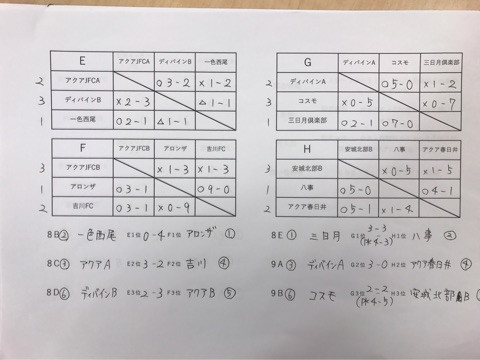 E アクアJFCA ディバインB 一色西尾
2 アクアJFCA ○3-2 ×1-2
3 ディバインB ×2-3 △1-1
1 一色西尾 ○2-1 △1-1
F アクアJFCB アロンザ 吉川FC
3 アクアJFCB ×1-3 ×1-3
1 アロンザ ○3-1 ○9-0
2 吉川FC ○3-1 ×0-9
8B② 一色西尾 E1位 0-4 F1位 アロンザ ①
8C③ アクアA E2位 3-2 F2位 吉川 ④
8D⑥ ディバインB E3位 2-3 F3位 アクアB ⑤
G ディバインA コスモ 三日月倶楽部
2 ディバインA ○5-0 ×1-2
3 コスモ ×0-5 ×0-7
1 三日月倶楽部 ○2-1 ○7-0
H 安城北部B 八事 アクア春日井
3 安城北部B ×0-5 ×1-5
1 八事 ○5-0 ○4-1
2 アクア春日井 ○5-1 ×1-4
8E① 三日月 G1位 3-3 (PK4-3) H1位 八事 ②
9A③ ディバインA G2位 3-0 H2位 アクア春日井 ④
9B⑥ コスモ G3位 2-2 (PK4-5) H3位 安城北部B